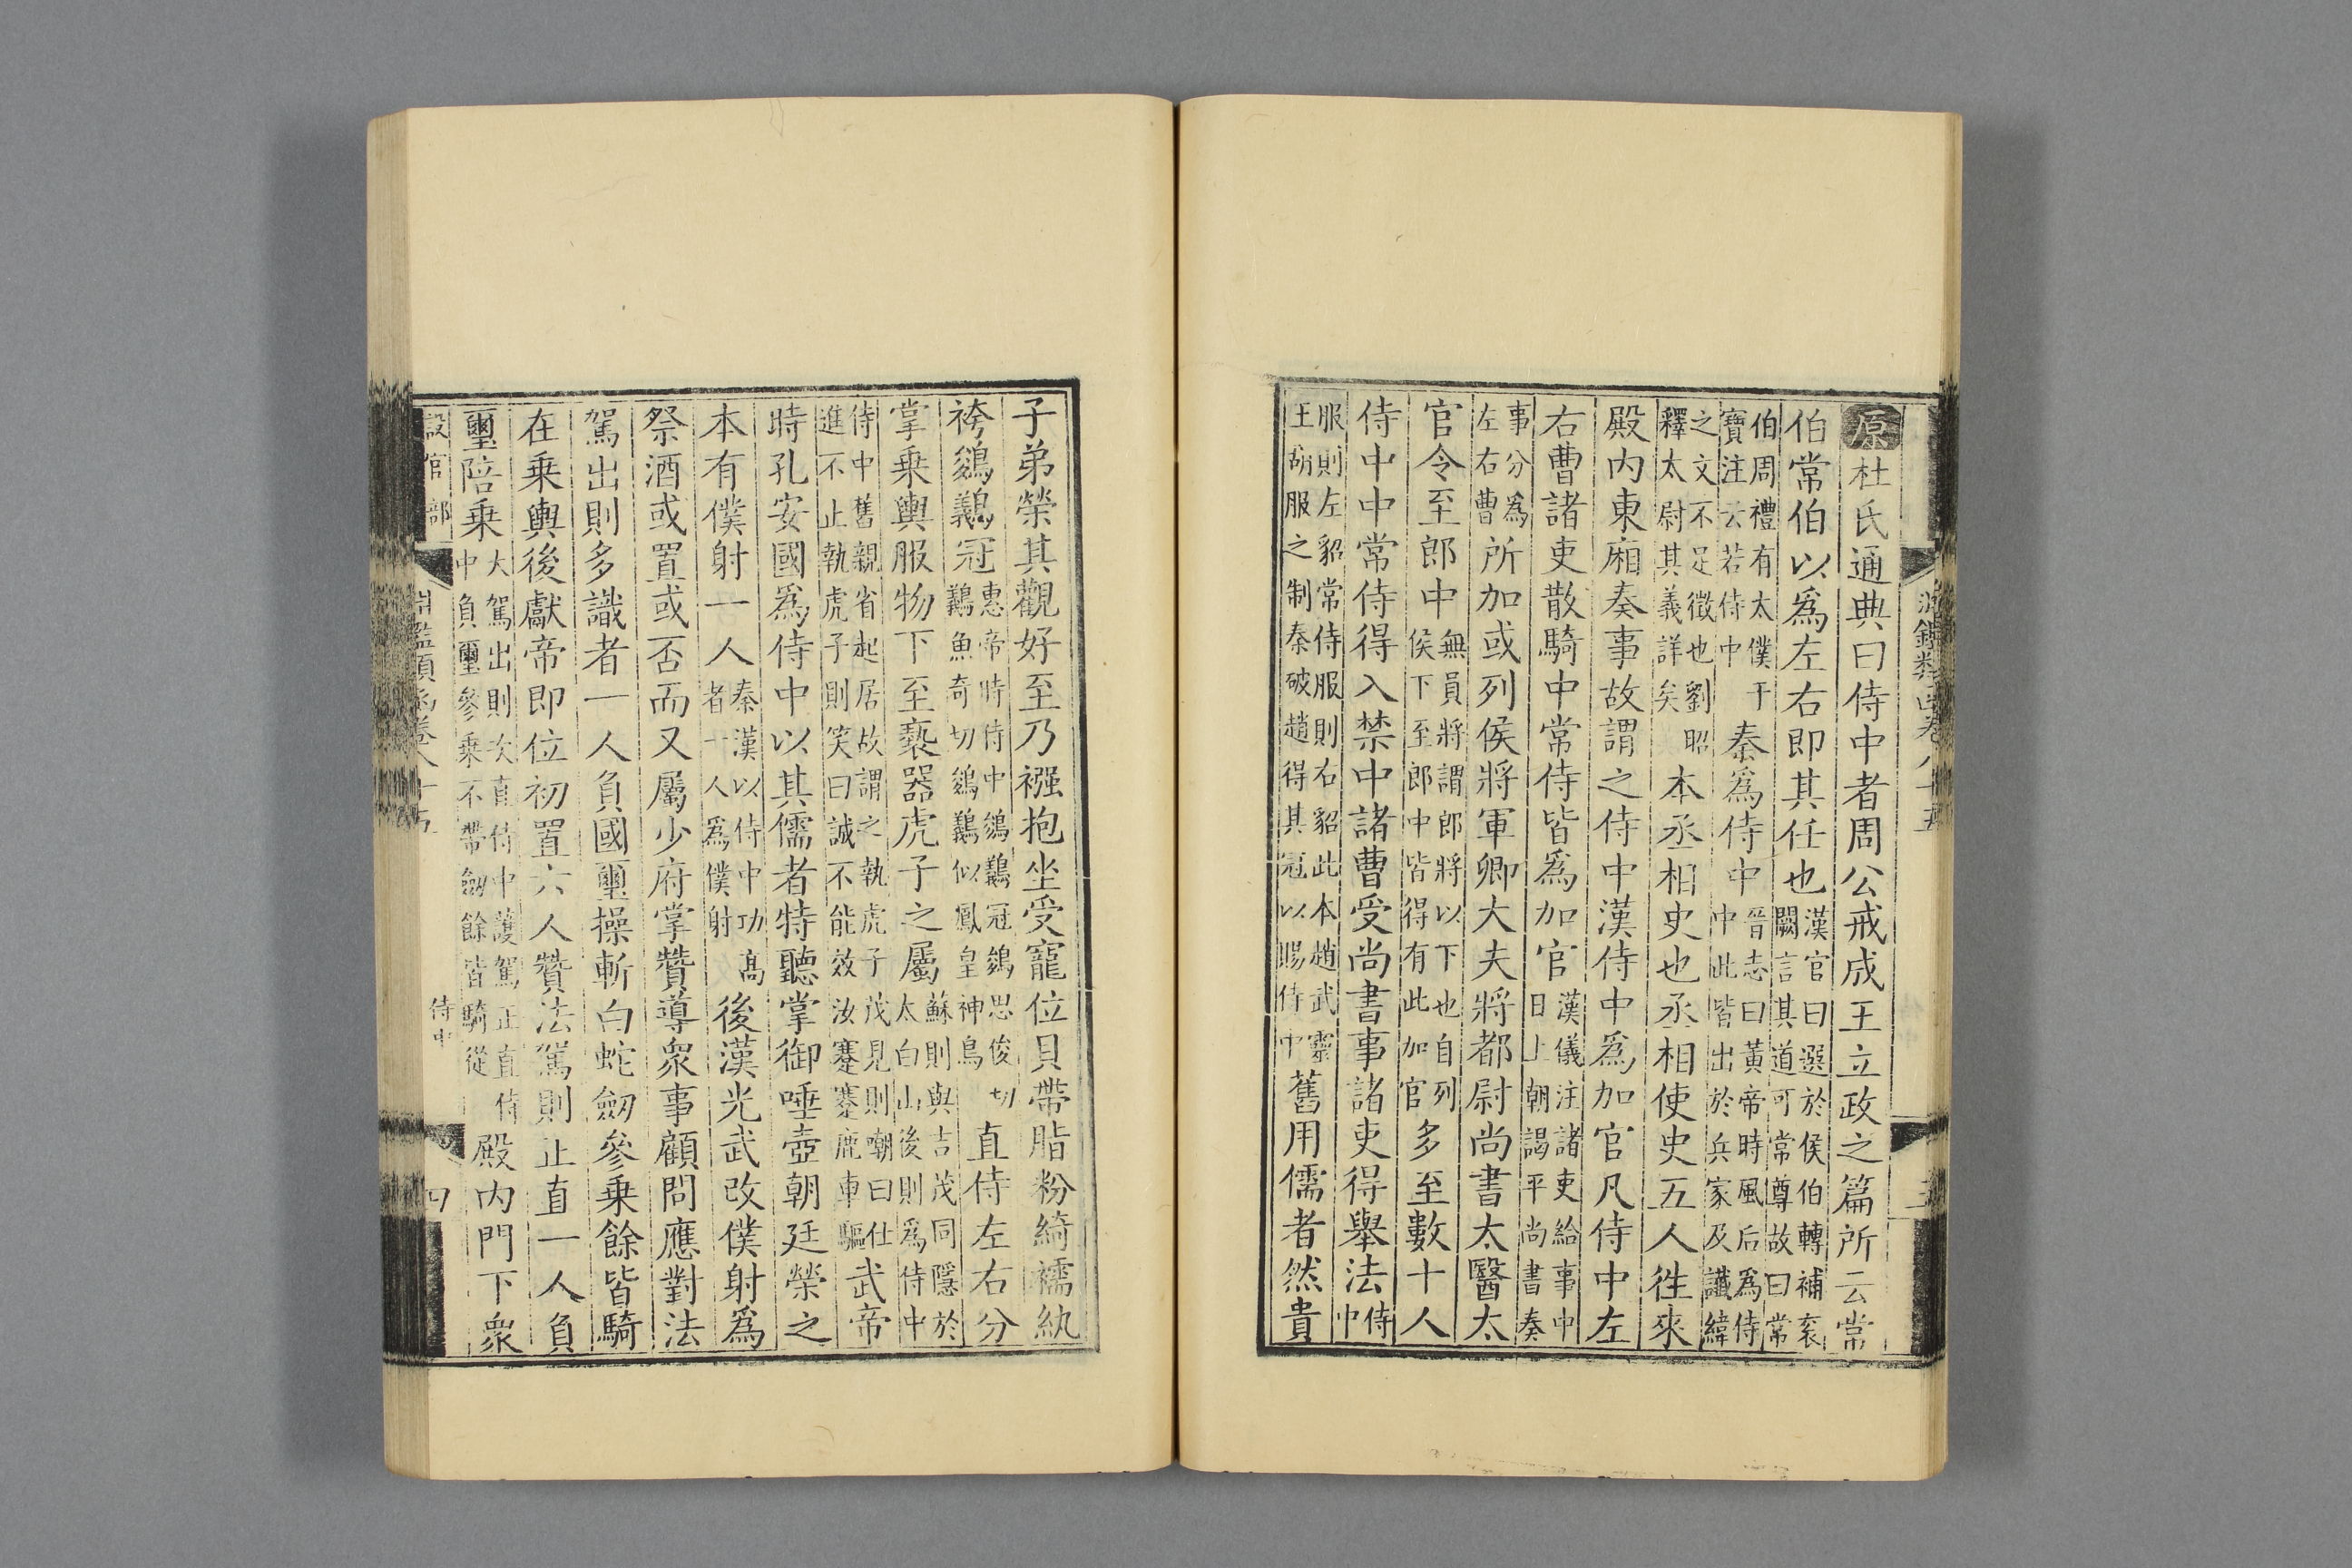 淵鑑類函卷八十五
原杜氏通典曰侍中者周公戒成王立政之篇所云常
伯常伯以爲左右即其任也漢官曰選於侯伯轉補衮闕言其道可常尊故曰常
伯周禮有太僕干寶注云若侍中秦爲侍中晉志曰黃帝時風后爲侍中此皆出於兵家及讖緯
之文不足徵也劉昭釋太尉其義詳矣本丞相史也丞相使史五人徃來
殿內東廂奏事故謂之侍中漢侍中爲加官凡侍中左
右曹諸吏散騎中常侍皆爲加官漢儀注諸吏給事中日上朝謁平尚書奏
事分爲左右曹所加或列侯將軍卿大夫將都尉尚書太醫太
官令至郎中無員將謂郎將以下也自列侯下至郎中皆得有此加官多至數十人
侍中中常侍得入禁中諸曹受尚書事諸吏得舉法侍中
服則左貂常侍服則右貂此本趙武靈王胡服之制秦破趙得其冠以賜侍中舊用儒者然貴
子弟榮其觀好至乃襁抱坐受寵位貝帶脂粉綺襦紈
袴鵕鸃冠惠帝時侍中鵕鸃冠鵕思俊切鸃魚奇切鵕鸃似鳳皇神鳥直侍左右分
掌乗輿服物下至褻器虎子之屬蘇則與吉茂同隱於太白山後則爲侍中
侍中舊親省起居故謂之執虎子茂見則嘲曰仕進不止執虎子則笑曰誠不能效汝蹇蹇鹿車驅武帝
時孔安國爲侍中以其儒者特聽掌御唾壺朝廷榮之
本有僕射一人秦漢以侍中功高者一人爲僕射後漢光武改僕射爲
祭酒或置或否而又屬少府掌贊導衆事顧問應對法
駕出則多識者一人負國璽操斬白蛇劒參乗餘皆騎
在乗輿後獻帝即位初置六人贊法駕則止直一人負
璽陪乗大駕出則次直侍中護駕正直侍中負璽參乗不帶劒餘皆騎從殿內門下衆
設官部 淵鑑類函卷八十五 侍中 四